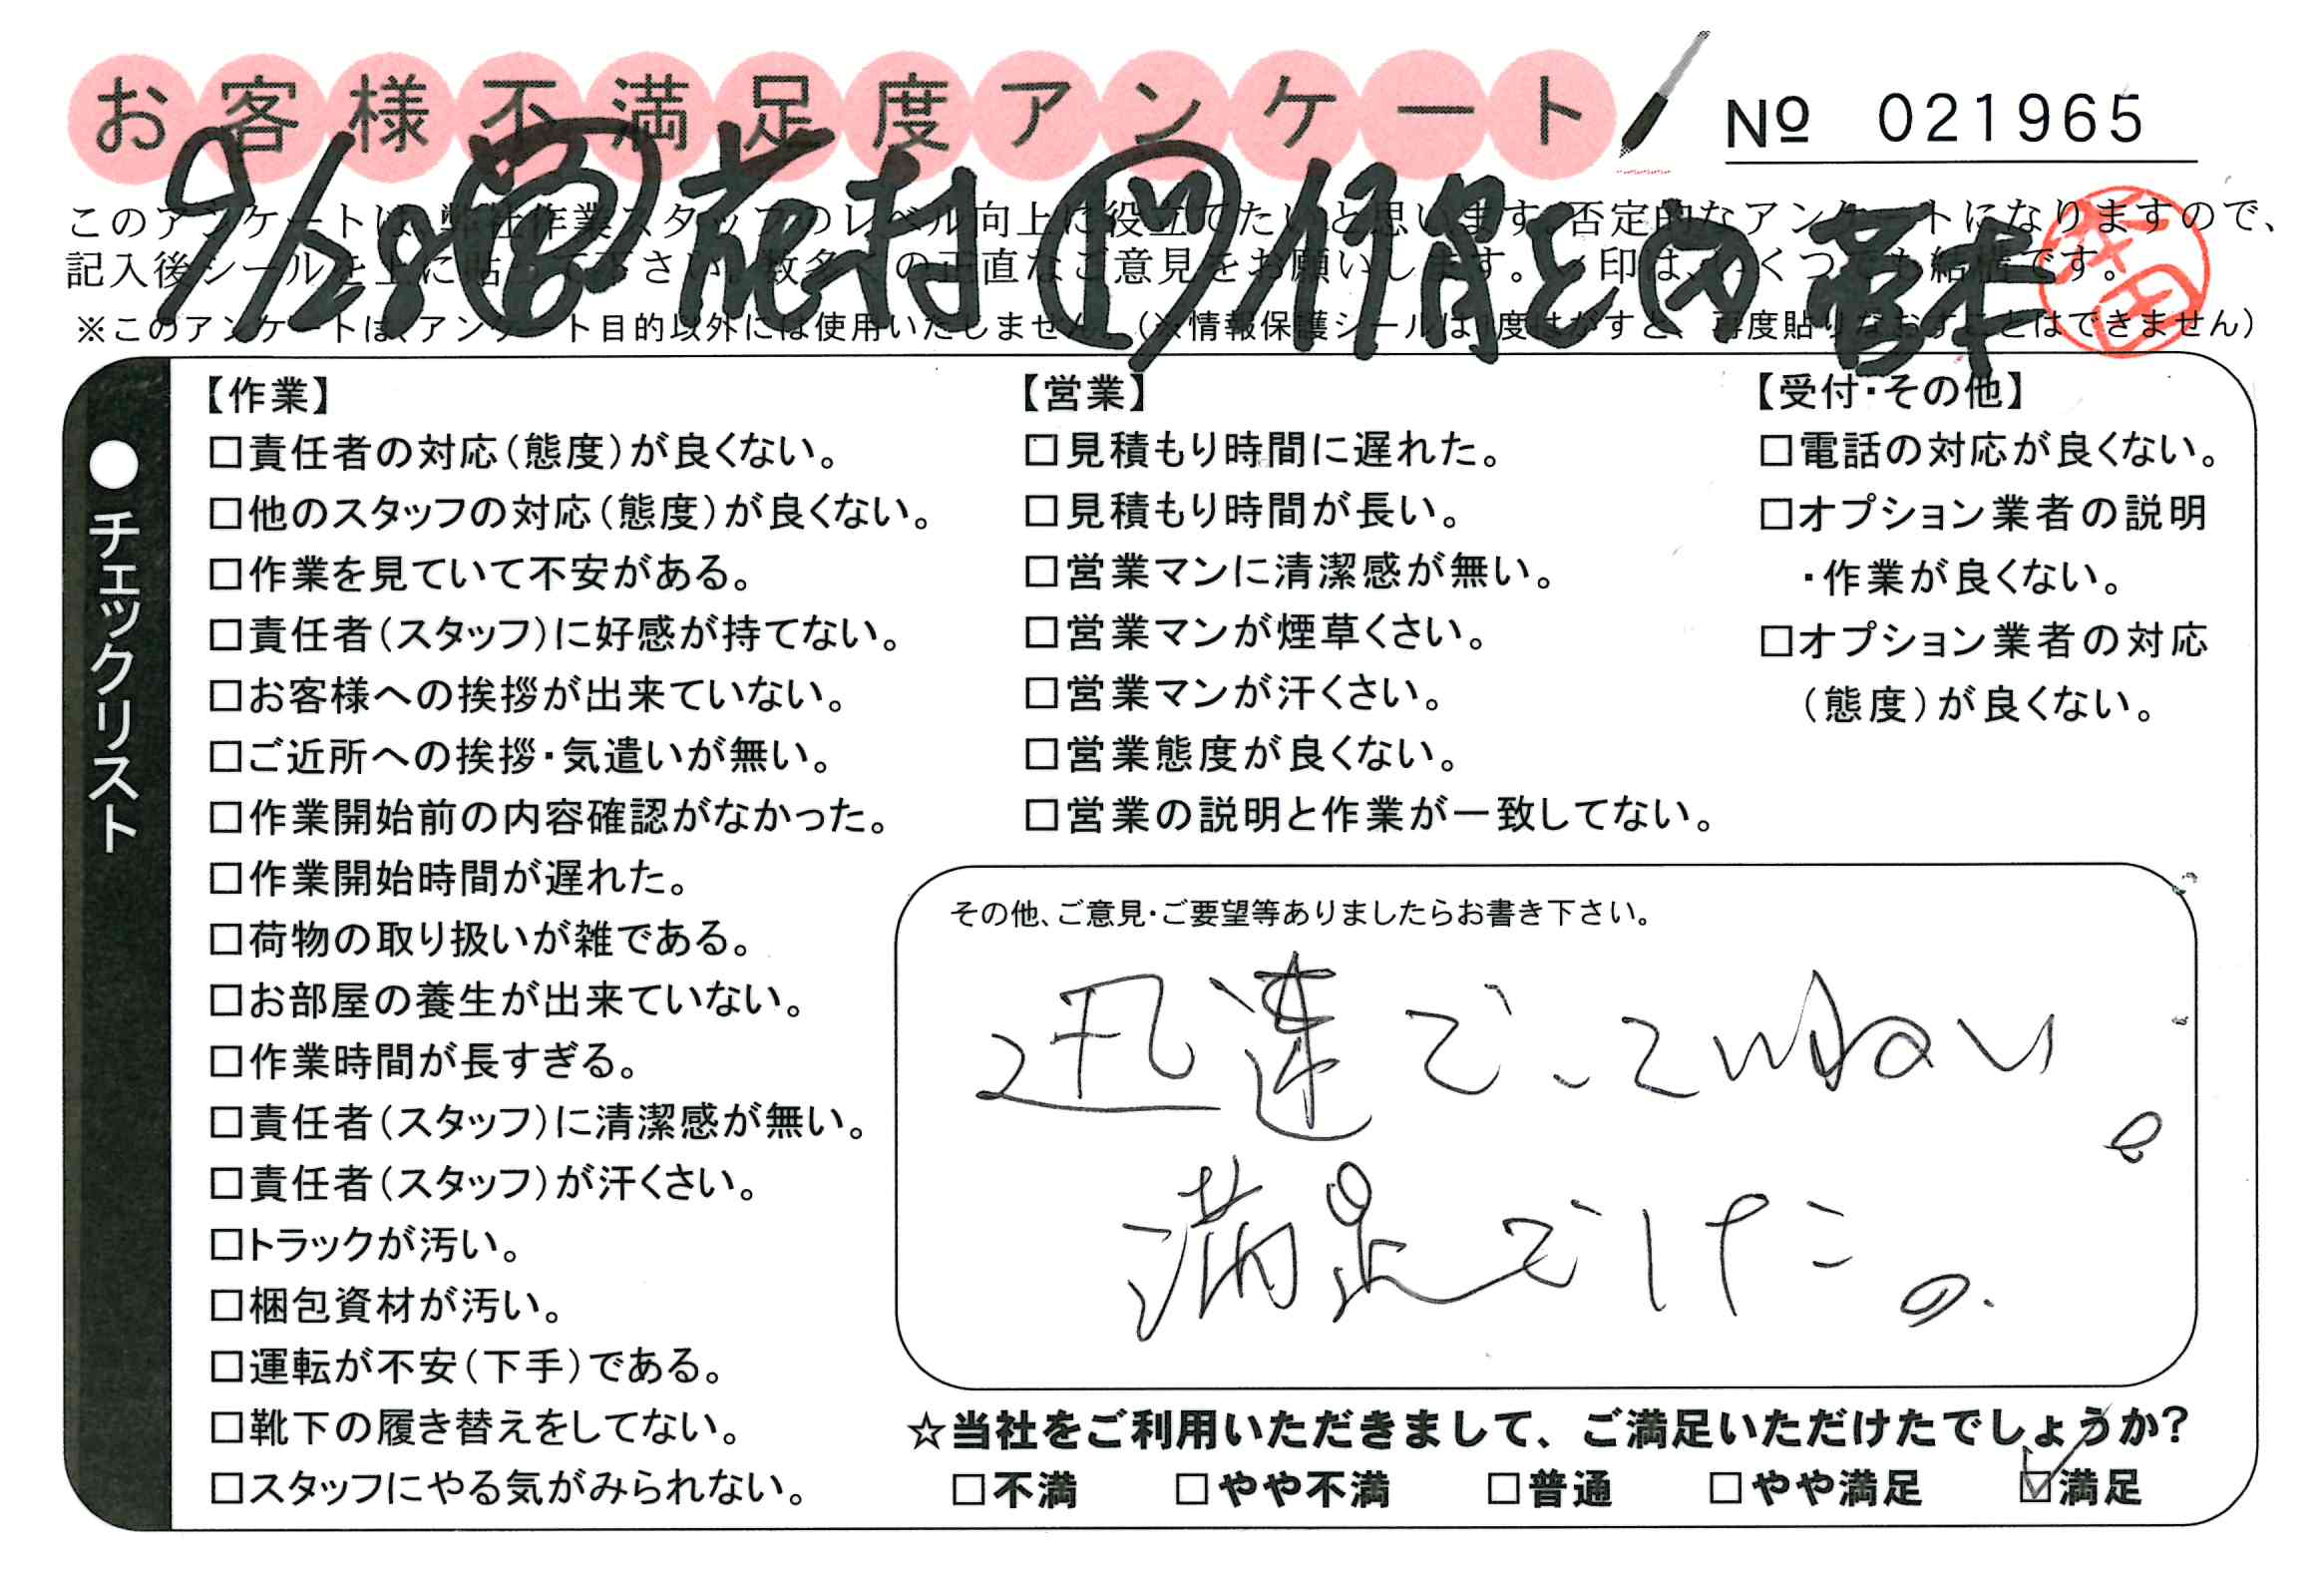 お客様不満足度アンケート
№ 021965
9/28
このアンケートは、弊社作業スタッフのレベル向上に役立てたいと思います。否定的なアンケートになりますので、
記入後シールを上に貼 下さい。数多くの正直なご意見をお願いします。 印は、いくつでも結構です。
※このアンケートは、アンケート目的以外には使用いたしません。(※情報保護シールは1度はがすと、再度貼りなおすことはできません)
●チェックリスト
【作業】
□責任者の対応(態度)が良くない。
□他のスタッフの対応(態度)が良くない。
□作業を見ていて不安がある。
□責任者(スタッフ)に好感が持てない。
□お客様への挨拶が出来ていない。
□ご近所への挨拶・気遣いが無い。
□作業開始前の内容確認がなかった。
□作業開始時間が遅れた。
□荷物の取り扱いが雑である。
□お部屋の養生が出来ていない。
□作業時間が長すぎる。
□責任者(スタッフ)に清潔感が無い。
□責任者(スタッフ)が汗くさい。
□トラックが汚い。
□梱包資材が汚い。
□運転が不安(下手)である。
□靴下の履き替えをしてない。
□スタッフにやる気がみられない。
【営業】
□見積もり時間に遅れた。
□見積もり時間が長い。
□営業マンに清潔感が無い。
□営業マンが煙草くさい。
□営業マンが汗くさい。
□営業態度が良くない。
□営業の説明と作業が一致してない。
【受付・その他】
□電話の対応が良くない。
□オプション業者の説明
・作業が良くない。
□オプション業者の対応
(態度)が良くない。
その他、ご意見・ご要望等ありましたらお書き下さい。
迅速で、ていねい。
満足でした。
☆当社をご利用いただきまして、ご満足いただけたでしょうか?
□不満 □やや不満 □普通 □やや満足 ☑満足